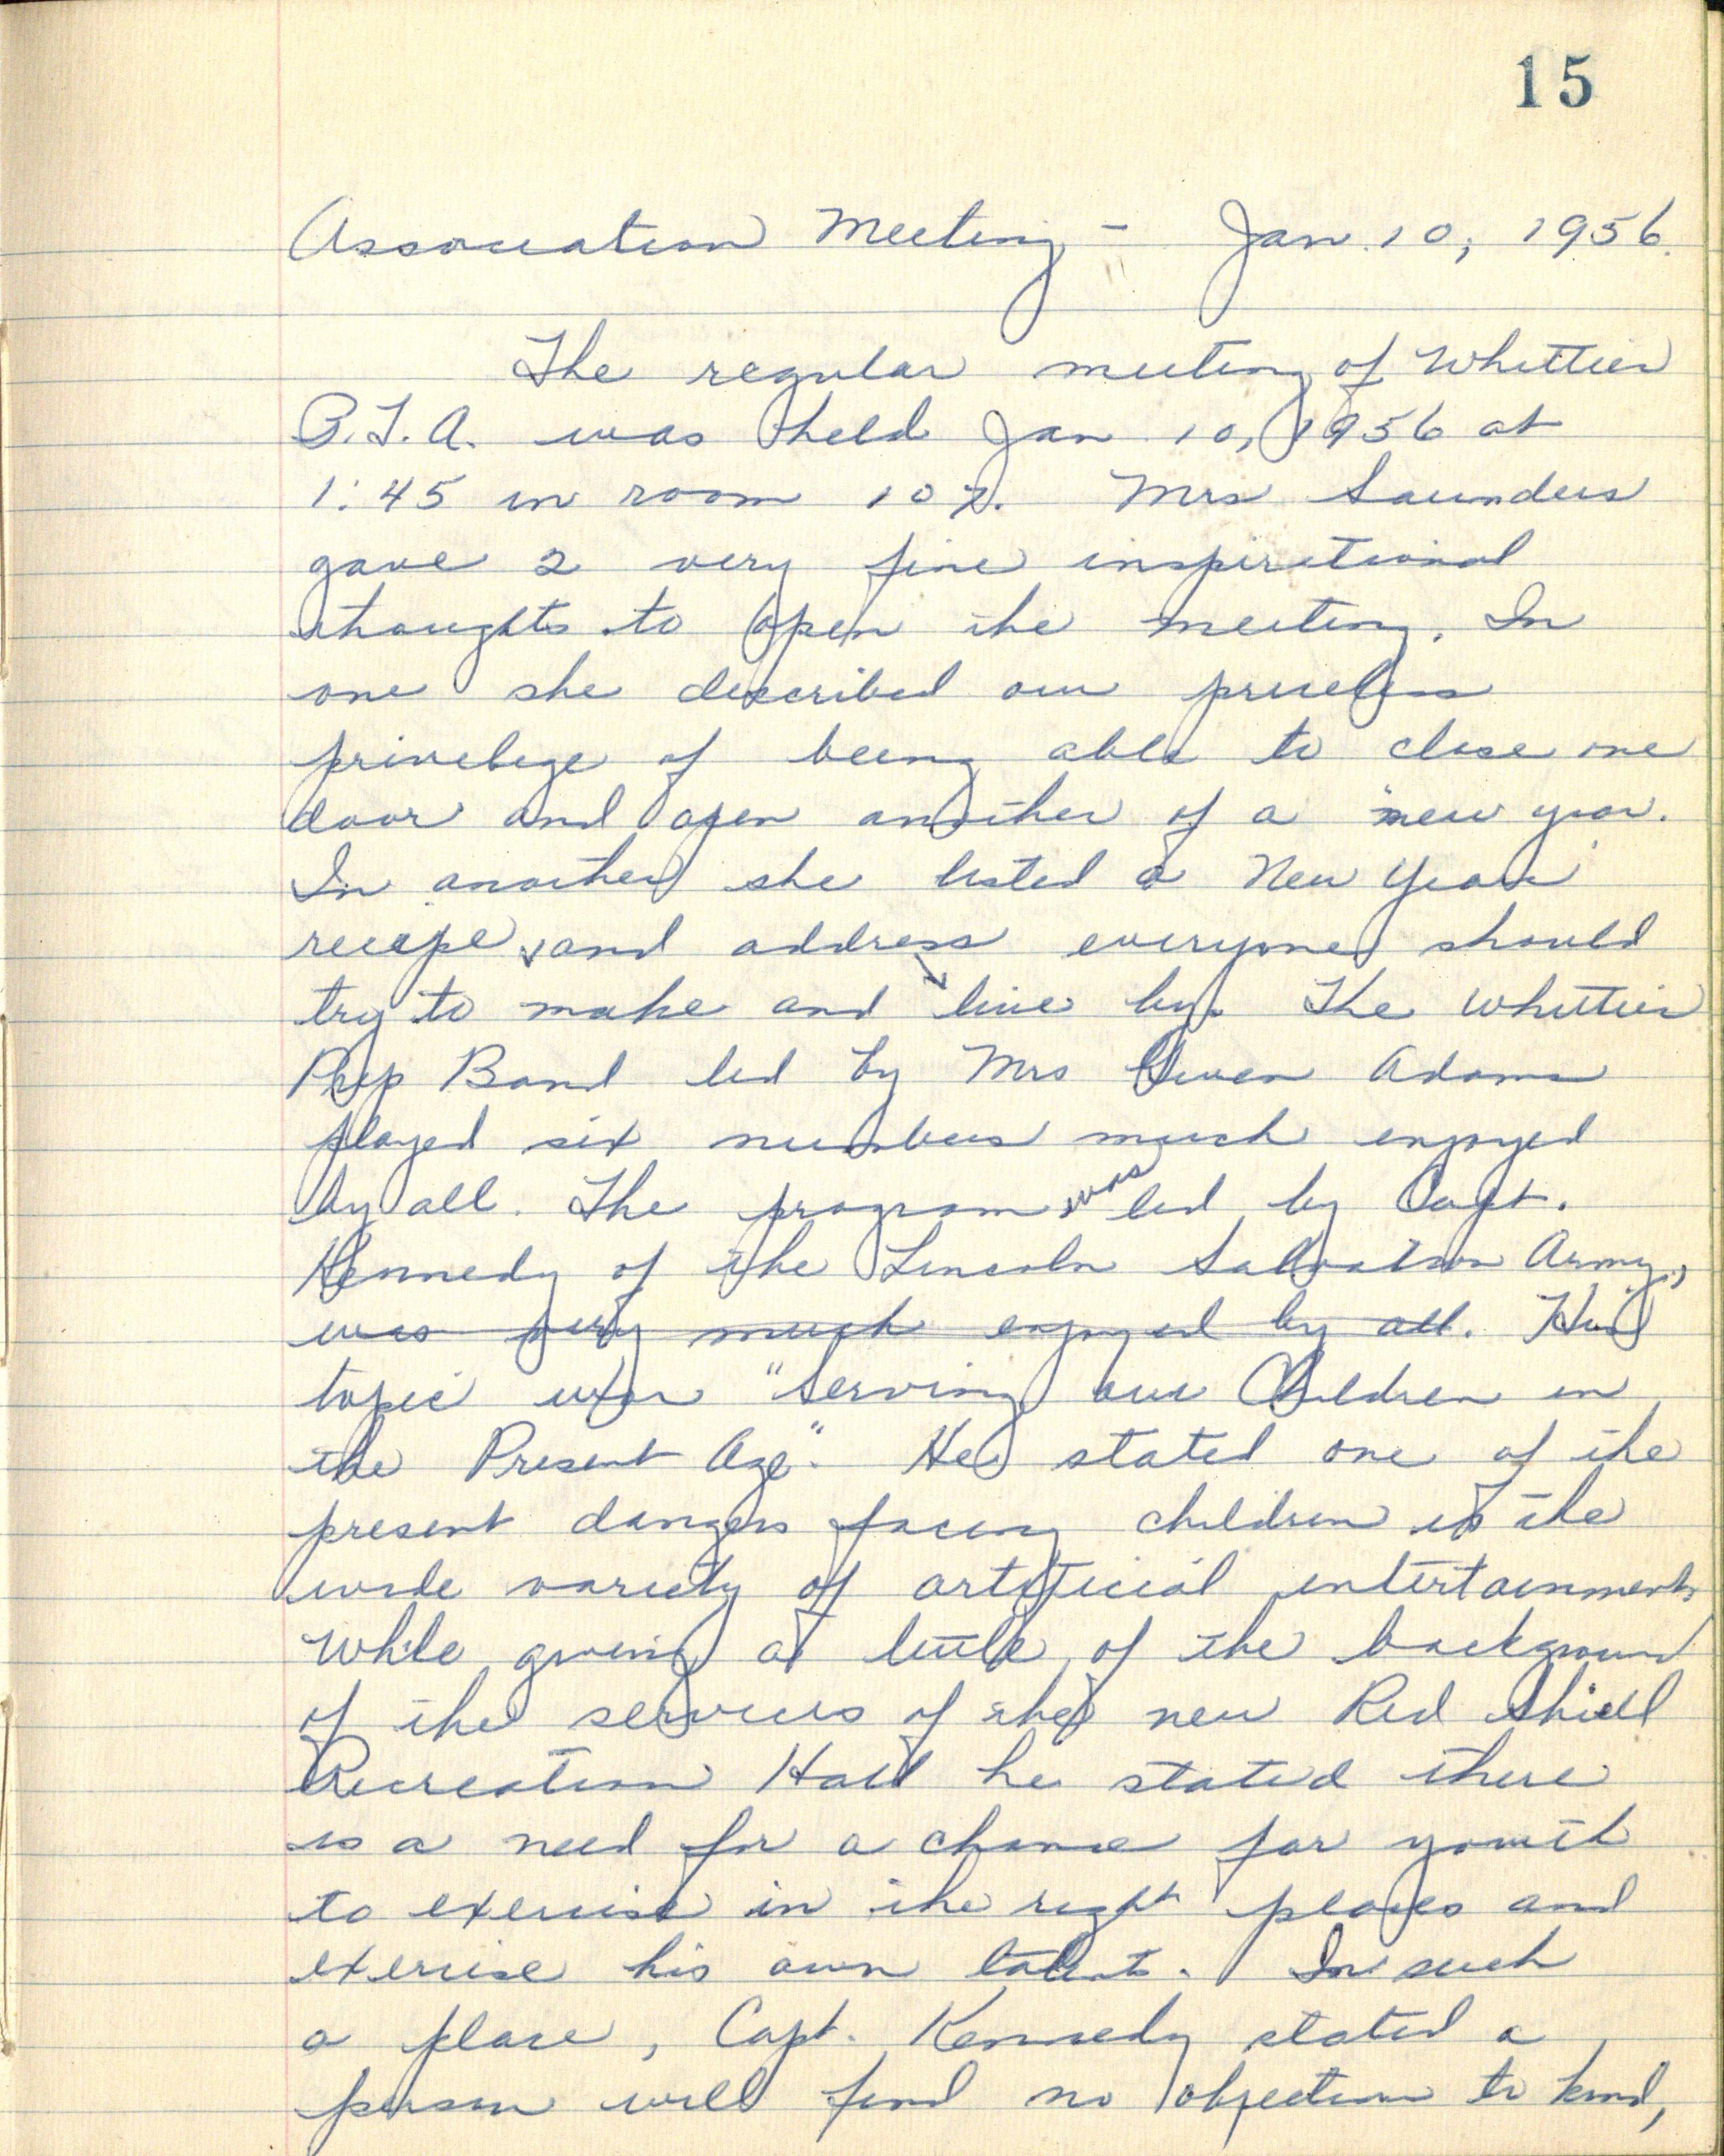 15
Association Meeting - Jan. 10, 1956.
The regular meeting of Whittier
P.T.A. was held Jan 10, 1956 at
1:45 in room 107. Mrs Saunders
gave 2 very fine inspirational
thoughts to open the meeting. In
one she described our priceless
privelege of being able to close one
door and open another of a new year.
In another she listed a New Years
recipe, and address everyone should
try to make and live by. The Whittier
Pep Band led by Mrs Gwen Adams
played six numbers much enjoyed
by all. The program was led by Capt.
Kennedy of the Lincoln Salvation Army.,
was very much enjoyed by all. His
topic was "Serving our Children in
the Present Age". He stated one of the
present dangers facing children is the
wide variety of artificial entertainments.
While giving a little of the background
of the services of the new Red Shield
Recreation Hall he stated there
is a need for a chance for youth
to exercise in the right places and
exercise his own talents. In such
a place, Capt. Kennedy stated a
person will find no objection to kind,